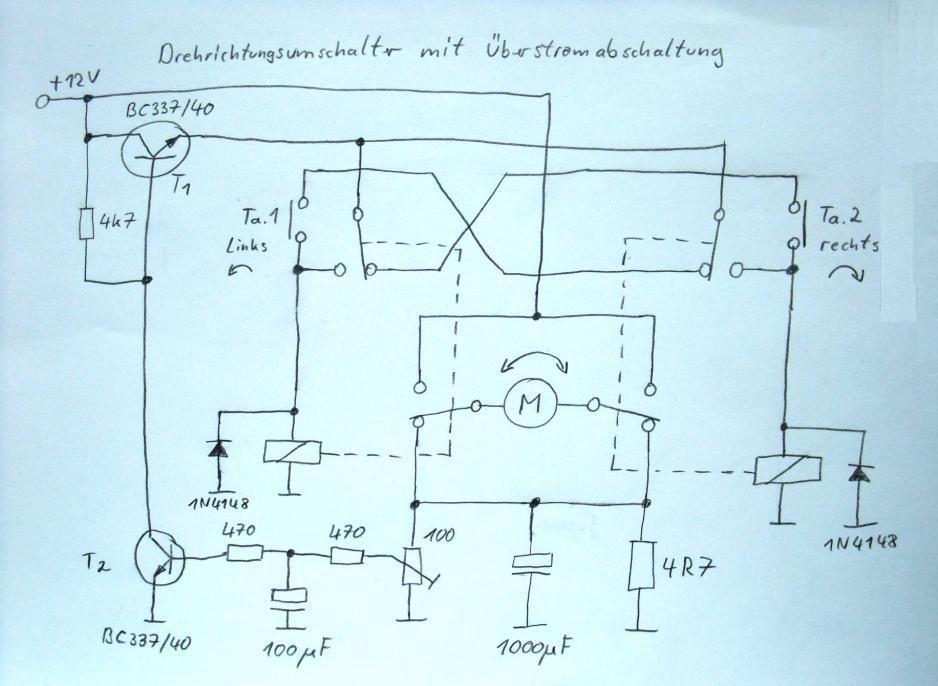 Drehrichtungsumschalter mit Überstromabschaltung
+12V
BC337/40
T1
4k7
Ta.1
Links
Ta.2
rechts
M
1N4148
1N4148
T2
470
470
100
4R7
BC337/40
100µF
1000µF